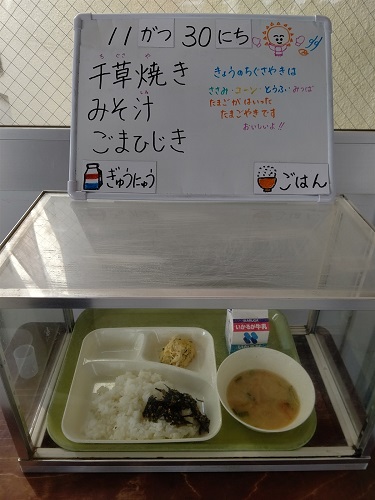 11がつ30にち
ちぐさや
千草焼き
みそ汁
ごまひじき
きょうのちぐさやきは
ささみ・コーン・とうふ・みつば
たまごがはいった
たまごやきです
おいしいよ!!
ぎゅうにゅう
ごはん
いかるが牛乳